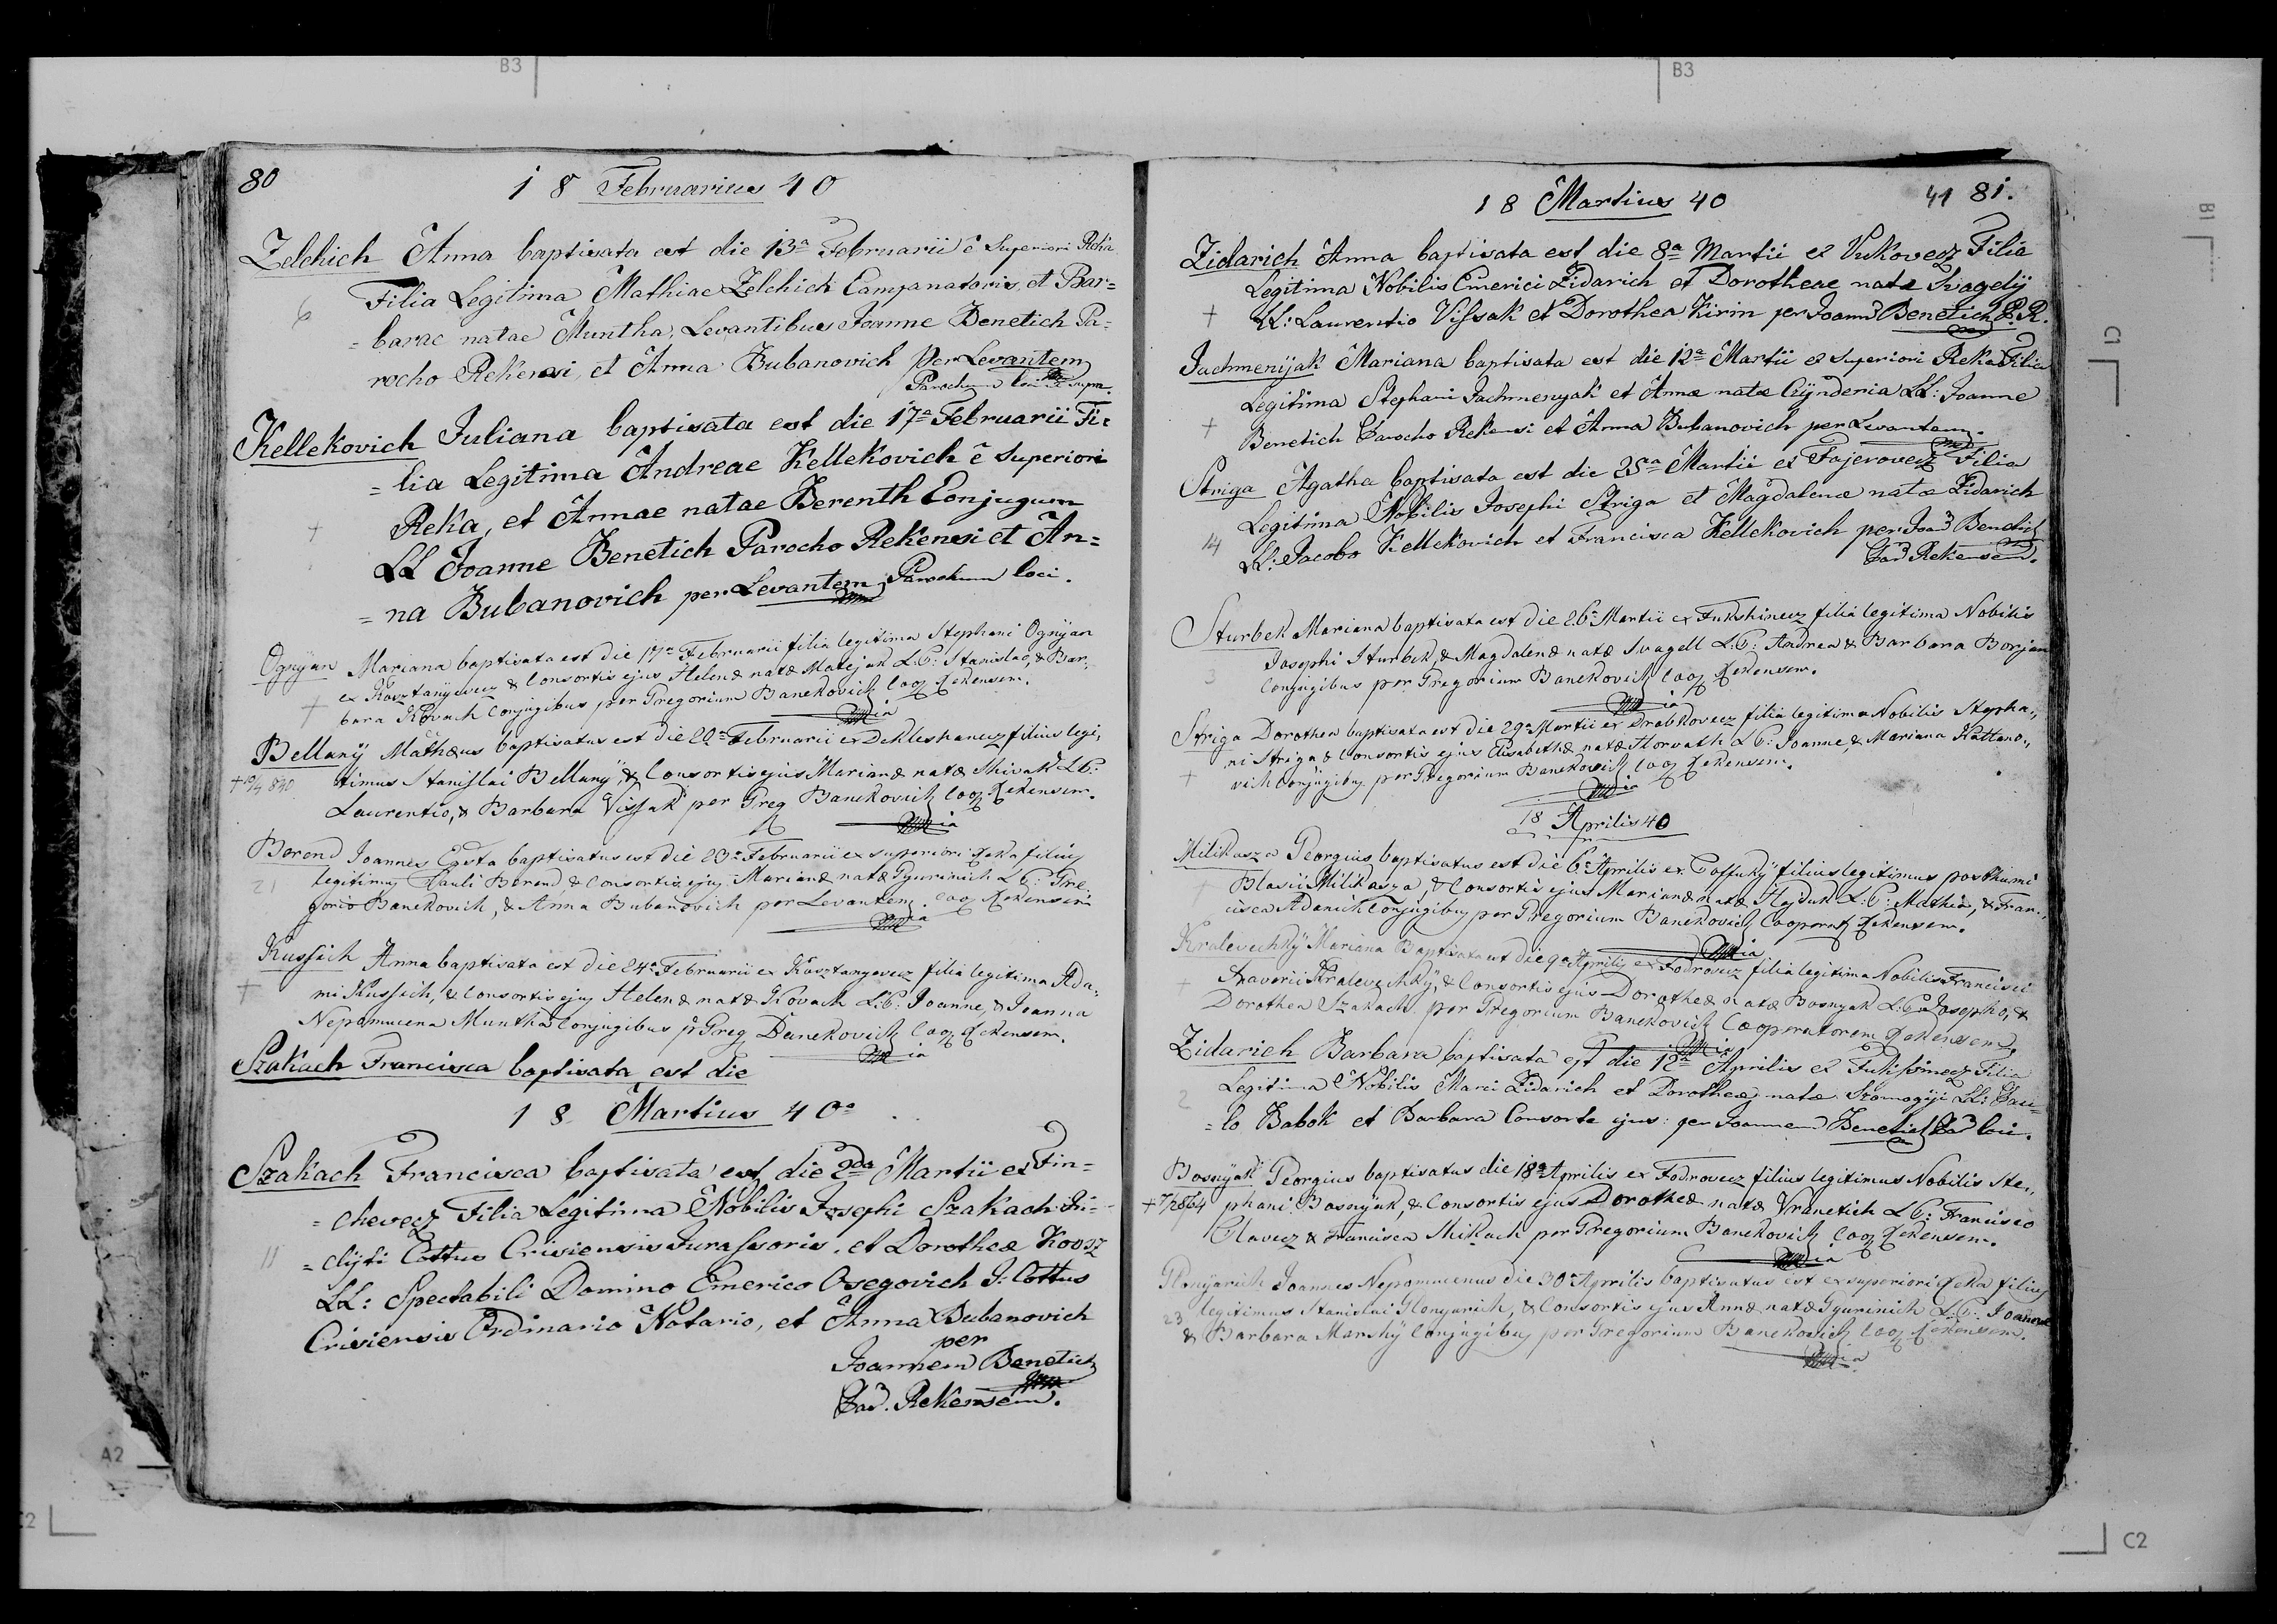 B3
80
18 Februarius 40
Zelchich Anna baptisata est die 13a Februarii è Superiori Reka
Filia Legitima Mathiae Zelchich Campanatoris, et Bar=
6
= barae natae Muntha, Levantibus Joanne Benetich Pa=
rocho Rekensi, et Anna Bubanovich per Levantem
Parochum loci supra.
Kellekovich Juliana baptisata est die 17a Februarii Fi=
= lia Legitima Andreae Kellekovich è Superiori
Reka, et Annae natae Berenth Conjugum
+
LL Joanne Benetich Parocho Rekensi et An=
= na Bubanovich per Levantem Parochum loci.
Ognyan Mariana baptisata est die 17a Februarii filia legitima Stephani Ognyan
ex Kosztanyevecz & Consortis ejus Helenæ natæ Matejak L.P: Stanislao, & Bar,
+ bara Kovach Conjugibus per Gregorium Banekovich Coop Rekensem.
Bellany Mathæus baptisatus est die 20a Februarii ex Dekleshanecz filius legi,
+ 19/4 840 timus Stanislai Bellany & Consortis ejus Marianæ natæ Shivak L.P:
Laurentio, & Barbara Vissak per Greg Banekovich Coop Rekensem.
Berend Joannes Egsta baptisatus est die 23a Februarii ex superiori Reka filius
21 legitimus Pauli Berend & Consortis ejus Marianæ natæ Gyurinich L.P: Gre,
gorio Banekovich, & Anna Bubanovich per Levantem. Coop Rekensem
Kussich Anna baptisata est die 24a Februarii ex Kosztanyevecz filia legitima Ada,
+ mi Kussich, & Consortis ejus Helenæ natæ Kovach L.P: Joanne, & Joanna
Nepomucena Muntha Conjugibus p Greg Banekovich Coop Rekensem.
Szakach Francisca baptisata est die
18 Martius 40a
Szakach Francisca baptisata est die 2da Martii ex Fin=
= chevecz Filia Legitima Nobilis Josephi Szakach In=
11 = clyti Cottus Crisiensis Jurassoris, et Dorotheæ Koosz
LL: Spectabili Domino Emerico Osegovich I: Cottus
Crisiensis Ordinario Notario, et Anna Bubanovich
per
Joannem Benetich
Par. Rekensem.
A2
C2
B3
18 Martius 40
41 81.
Zidarich Anna baptisata est die 8a Martii ex Vukovecz Filia
Legitima Nobilis Emerici Zidarich et Dorotheae natæ Svagely
+ LL: Laurentio Vissak et Dorothea Kirin per Joann Benetich P.R.
Jachmenijak Mariana baptisata est die 12a Martii ex Superiori Reka Filia
Legitima Stephani Jachmenyak et Annæ natæ Cynderia LL: Joanne
+ Benetich Parocho Rekensi et Anna Bubanovich per Levantem.
Striga Agatha baptisata est die 25a Martii ex Fajerovecz Filia
Legitima Nobilis Josephi Striga et Magdalenæ natæ Zidarich
14 LL: Jacobo Kellekovich et Francisca Kellekovich per Joan Benetich
Par Rekensem.
Sturbek Mariana baptisata est die 26a Martii ex Fukshinecz filia legitima Nobilis
Josephi Sturbek, & Magdalenæ natæ Svagell L.P: Andrea & Barbara Borjan
3 Conjugibus per Gregorium Banekovich Coop Rekensem.
Striga Dorothea baptisata est die 29a Martii ex Drabkovecz filia legitima Nobilis Stepha,,
ni Striga & Consortis ejus Elisabethæ natæ Horvath L.P: Joanne, & Mariana Kattano,,
+ vich Conjugibus per Gregorium Banekovich Coop Rekensem.
18 Aprilis 40
Milikasza Georgius baptisatus est die 6a Aprilis ex Poffuky filius legitimus posthumi
+ Blasii Milikasza, & Consortis ejus Marianæ natæ Hajduk L.P: Mathia, & Fran,,
cisca Adanich Conjugibus per Gregorium Banekovich Cooperat Rekensem.
Kralevechky Mariana Baptisata est die 9a Aprilis ex Fodrovecz filia legitima Nobilis Francisci
+ Xaverii Kralevechky, & Consortis ejus Dorotheæ natæ Bosnyak L.P: Josepho, &
Dorothea Szakach per Gregorium Banekovich Cooperatorem Rekensem.
Zidarich Barbara baptisata est die 12a Aprilis ex Fukissinecz Filia
Legitima Nobilis Marci Zidarich et Dorotheæ natæ Somogyi LL: Pau=
2 = lo Babok et Barbara Consorte ejus: per Joannem Benetich Par loci.
Bosnyak Georgius baptisatus die 18a Aprilis ex Fodrovecz filius legitimus Nobilis Ste,,
+ 7/2864 phani Bosnyak, & Consortis ejus Dorotheæ natæ Vranetich L.P: Francisco
Glavecz & Francisca Mikach per Gregorium Banekovich Coop Rekensem.
Joannes Nepomucenus die 30a Aprilis baptisatus est ex superiori Reka filius
23 legitimus Stanislai & Consortis ejus Annæ natæ Gyurinich L.P: Joanne
& Barbara Marsky Conjugibus per Gregorium Banekovich Coop Rekensem.
B1
C1
C2